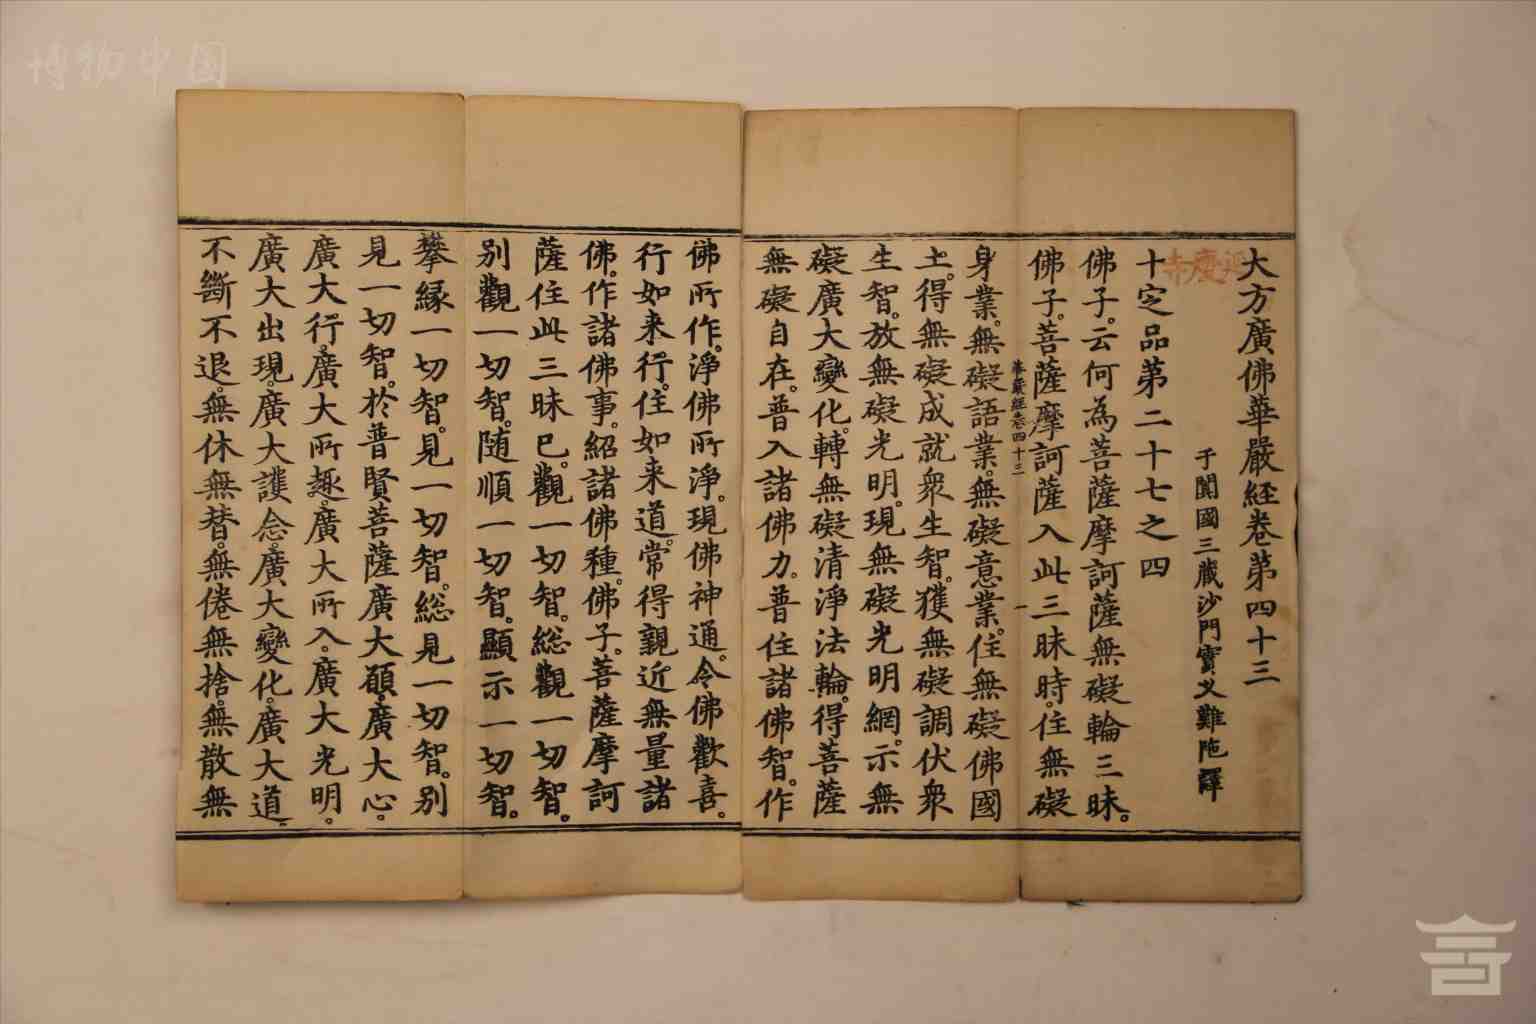 博物中国
大方廣佛華嚴経卷第四十三
延慶寺
于闐國三藏沙門實叉難陁譯
十定品第二十七之四
佛子。云何為菩薩摩訶薩無礙輪三昧。
佛子。菩薩摩訶薩入此三昧時。住無礙
華嚴經卷四十三 一
身業。無礙語業。無礙意業。住無礙佛國
土。得無礙成就衆生智。獲無礙調伏衆
生智。放無礙光明。現無礙光明網。示無
礙廣大變化。轉無礙清淨法輪。得菩薩
無礙自在。普入諸佛力。普住諸佛智。作
佛所作。淨佛所淨。現佛神通。令佛歡喜。
行如来行。住如来道。常得親近無量諸
佛。作諸佛事。紹諸佛種。佛子。菩薩摩訶
薩住此三昧已。觀一切智。総觀一切智。
別觀一切智。随順一切智。顯示一切智。
攀縁一切智。見一切智。総見一切智。別
見一切智。於普賢菩薩廣大願。廣大心。
廣大行。廣大所趣。廣大所入。廣大光明。
廣大出現。廣大護念。廣大變化。廣大道。
不斷不退。無休無替。無倦無捨。無散無